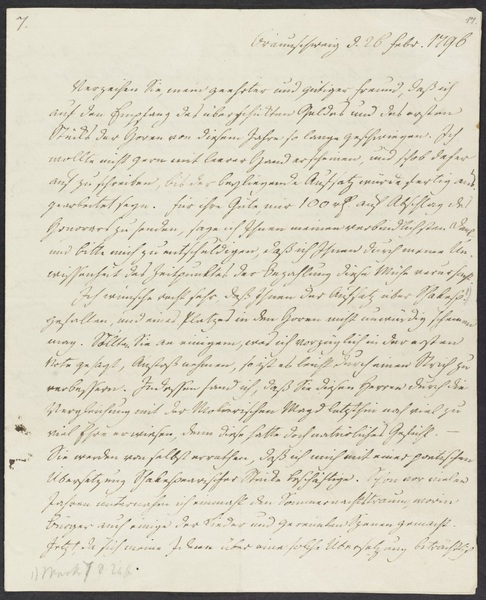 7.
Braunschweig d. 26 Febr. 1796
Verzeihen Sie mein geehrter und gütiger Freund, daß ich
auf den Empfang des überschickten Geldes und des ersten
Stücks der Horen von diesem Jahre so lange geschwiegen. Ich
wollte nicht gern mit leerer Hand erscheinen, und schob daher
auf zu schreiben, bis der beyliegende Aufsatz würde fertig aus
gearbeitet seyn. Für Ihre Güte mir 100 rh auf Abschlag des
Honorars zu senden, sage ich Ihnen meinen verbindlichsten Dank
und bitte mich zu entschuldigen, daß ich Ihnen durch meine Un
wissenheit des Zeitpunktes der Bezahlung diese Mühe verursacht.
Ich wünsche recht sehr, daß Ihnen der Aufsatz über Shaksp.
gefallen, und eines Platzes in den Horen nicht unwürdig scheinen
mag. Sollten Sie an einigem, was ich vorzüglich in der ersten
Note gesagt, Anstoß nehmen, so ist es leicht durch einen Strich zu
verbessern. Indessen fand ich, daß Sie diesen Herren durch die
Vergleichung mit der Molierischen Magd letzthin noch viel zu
viel Ehre erwiesen, denn diese hatte doch natürliches Gefühl. —
Sie werden von selbst errathen, daß ich mich mit einer poetischen
Übersetzung Shakspearischer Stücke beschäftige. Schon vor mehren
Jahren unternahm ich einmahl den Sommernachtstraum, worin
Bürger auch einige der Lieder und gereimten Szenen gemacht.
Jetzt, da sich meine Ideen über eine solche Übersetzung beträchtlich